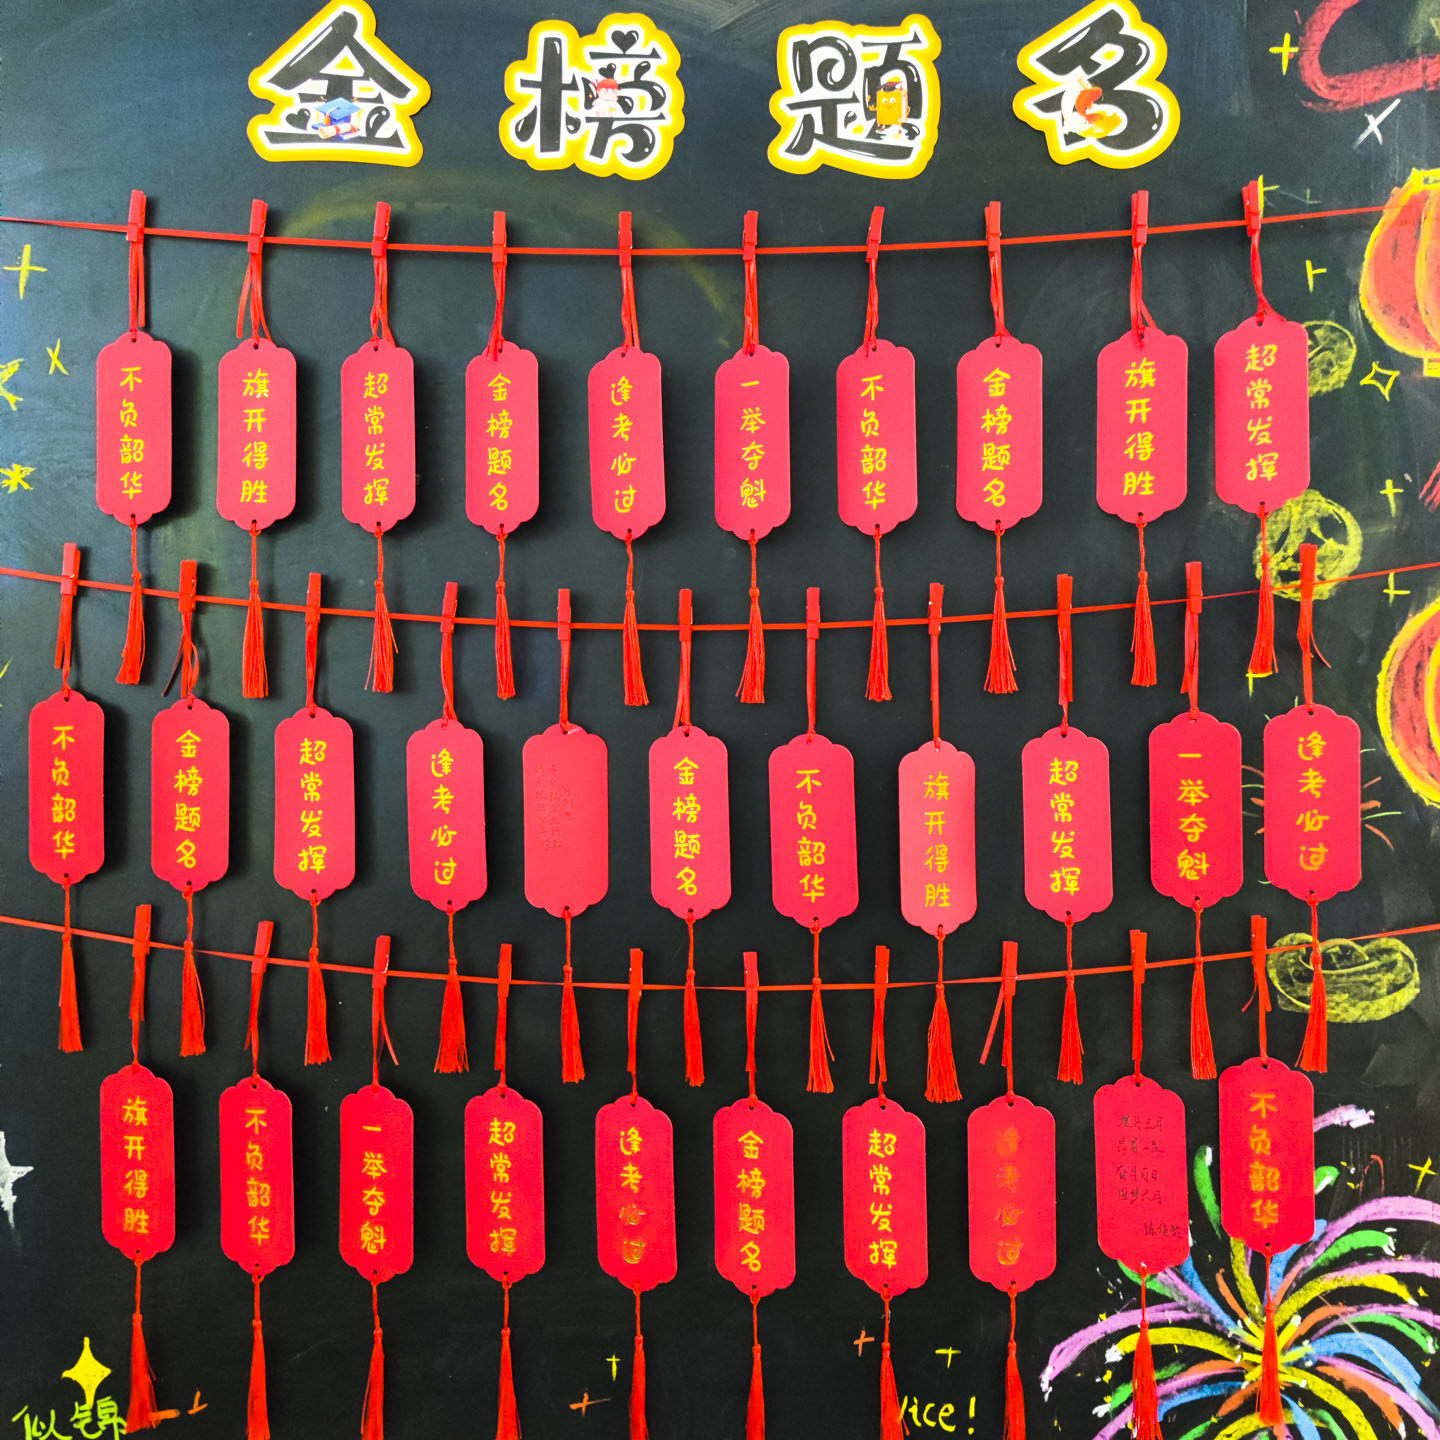 金榜题名
不负韶华
旗开得胜
超常发挥
金榜题名
逢考必过
一举夺魁
不负韶华
金榜题名
旗开得胜
超常发挥
不负韶华
金榜题名
超常发挥
逢考必过
金榜题名
不负韶华
旗开得胜
超常发挥
一举夺魁
逢考必过
旗开得胜
不负韶华
一举夺魁
超常发挥
逢考必过
金榜题名
超常发挥
逢考必过
奋斗百日
圆梦六月
不负韶华
似锦